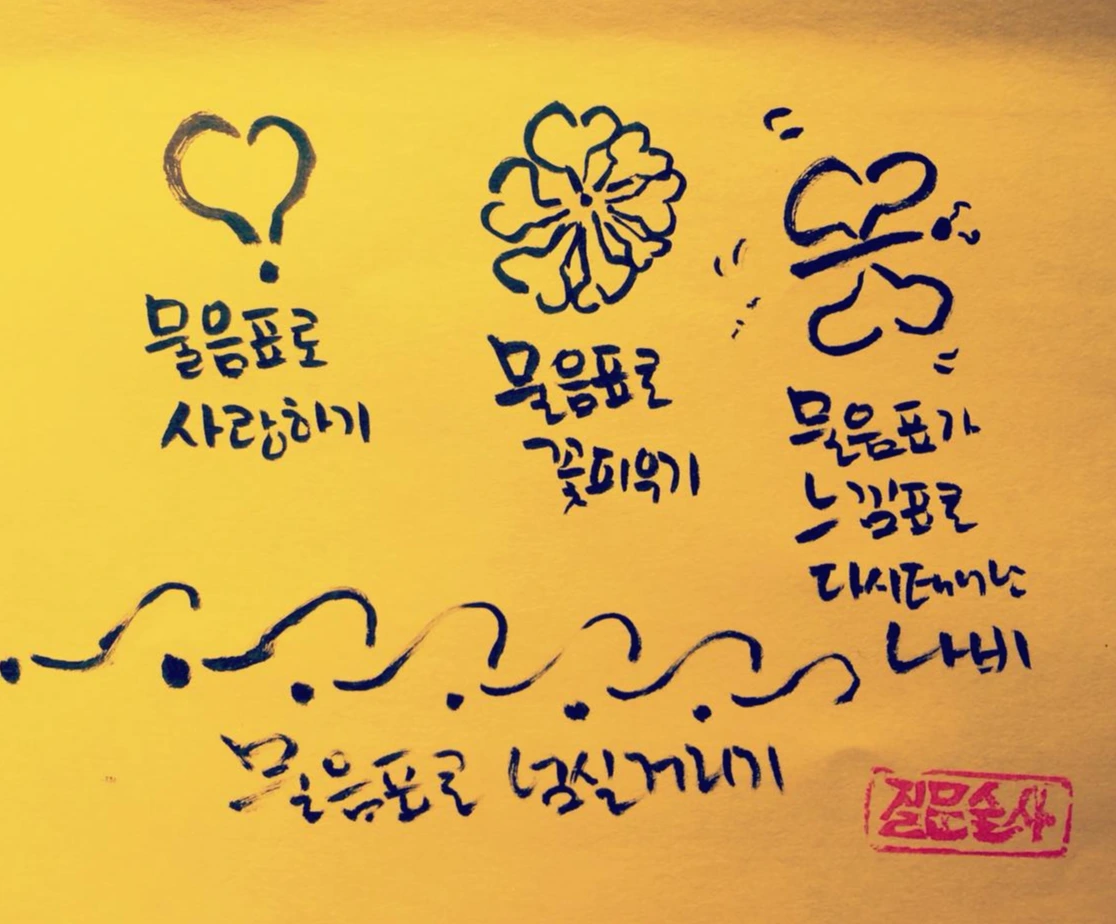 물음표로
사랑하기
물음표로
꽃피우기
물음표가
느낌표로
다시태어난
나비
물음표로 넘실거리기
질문술사